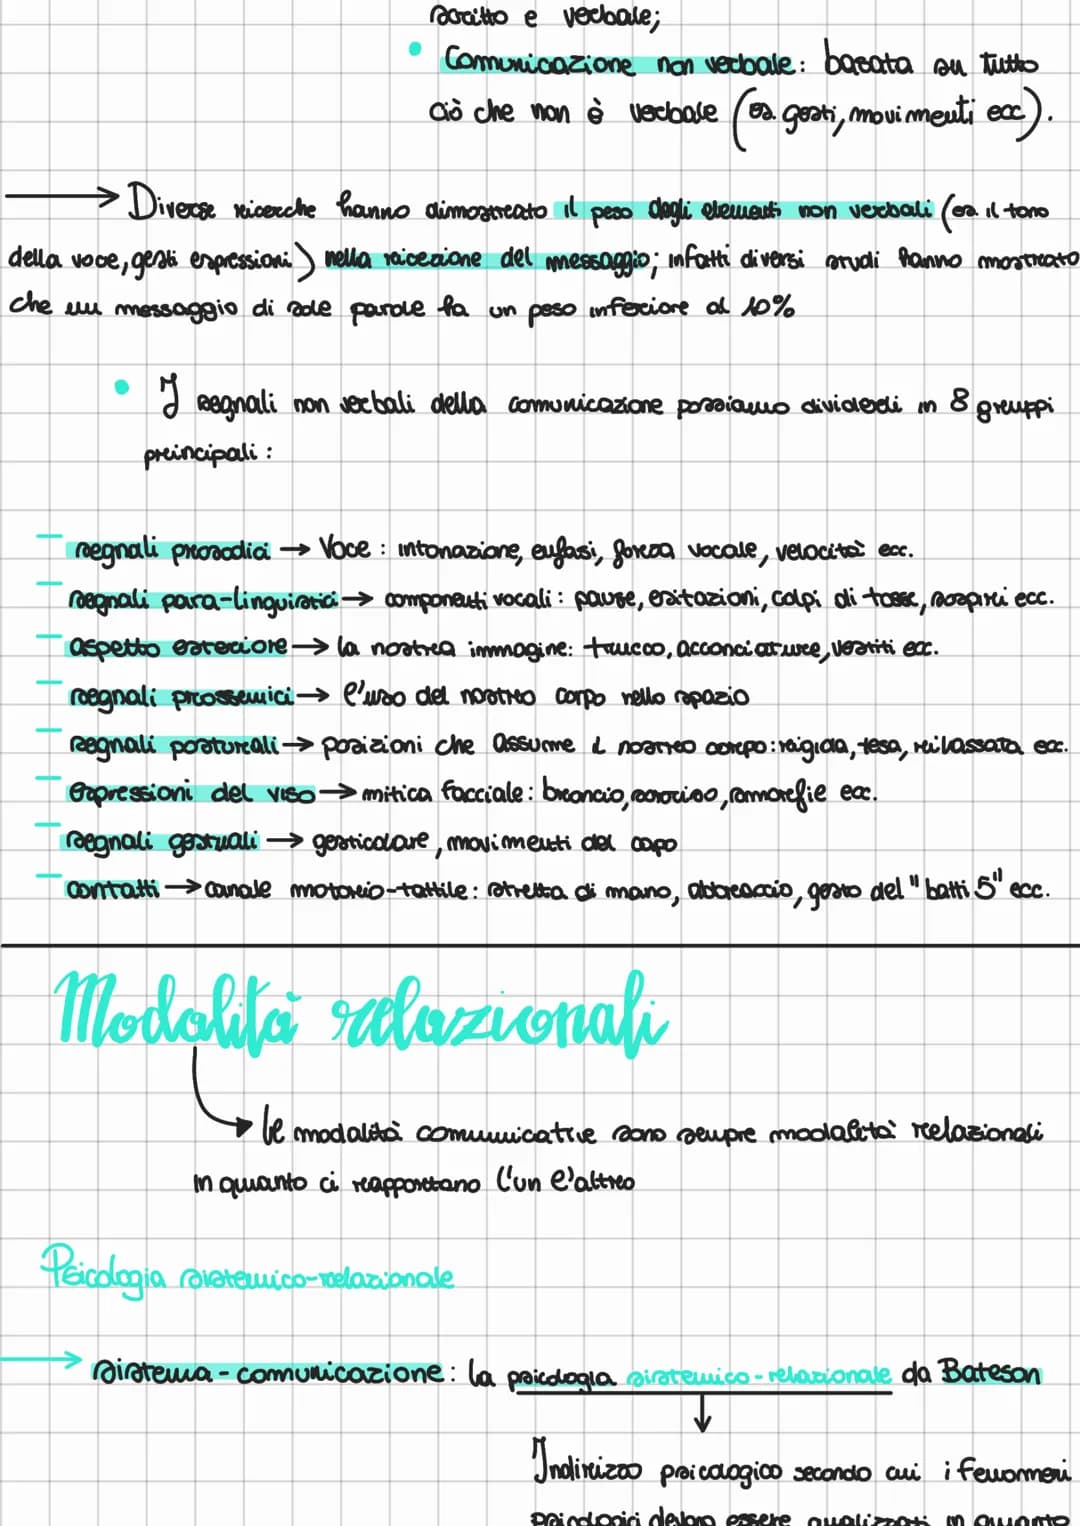 scritto e verbale;
• Comunicazione non verbale: basata su tutto
ciò che non è verbale (es. gesti, movimenti ecc).
→ Diverse ricerche hanno dimostrato il peso degli elementi non verbali (es. il tono
della voce, gesti espressioni) nella ricezione del messaggio; infatti diversi studi hanno mostrato
che un messaggio di sole parole ha un peso inferiore al 10%
• I segnali non verbali della comunicazione possiamo dividerli in 8 gruppi
principali:
– segnali prosodici → Voce: intonazione, enfasi, forza vocale, velocità ecc.
– segnali para-linguistici → componenti vocali: pause, esitazioni, colpi di tosse, sospiri ecc.
– aspetto esteriore → la nostra immagine: trucco, acconciature, vestiti ecc.
– segnali prossemici → l'uso del nostro corpo nello spazio
– segnali posturali → posizioni che assume il nostro corpo: rigida, tesa, rilassata ecc.
– espressioni del viso → mitica facciale: broncio, sorriso, smorfie ecc.
– segnali gestuali → gesticolare, movimenti del capo
– contatti → canale motorio-tattile: stretta di mano, abbraccio, gesto del "batti 5" ecc.
Modalità relazionali
le modalità comunicative sono sempre modalità relazionali
in quanto ci rapportano l'un l'altro
Psicologia sistemico-relazionale
→ sistema-comunicazione: la psicologia sistemico-relazionale da Bateson
Indirizzo psicologico secondo cui i fenomeni
psicologici devono essere analizzati in quanto